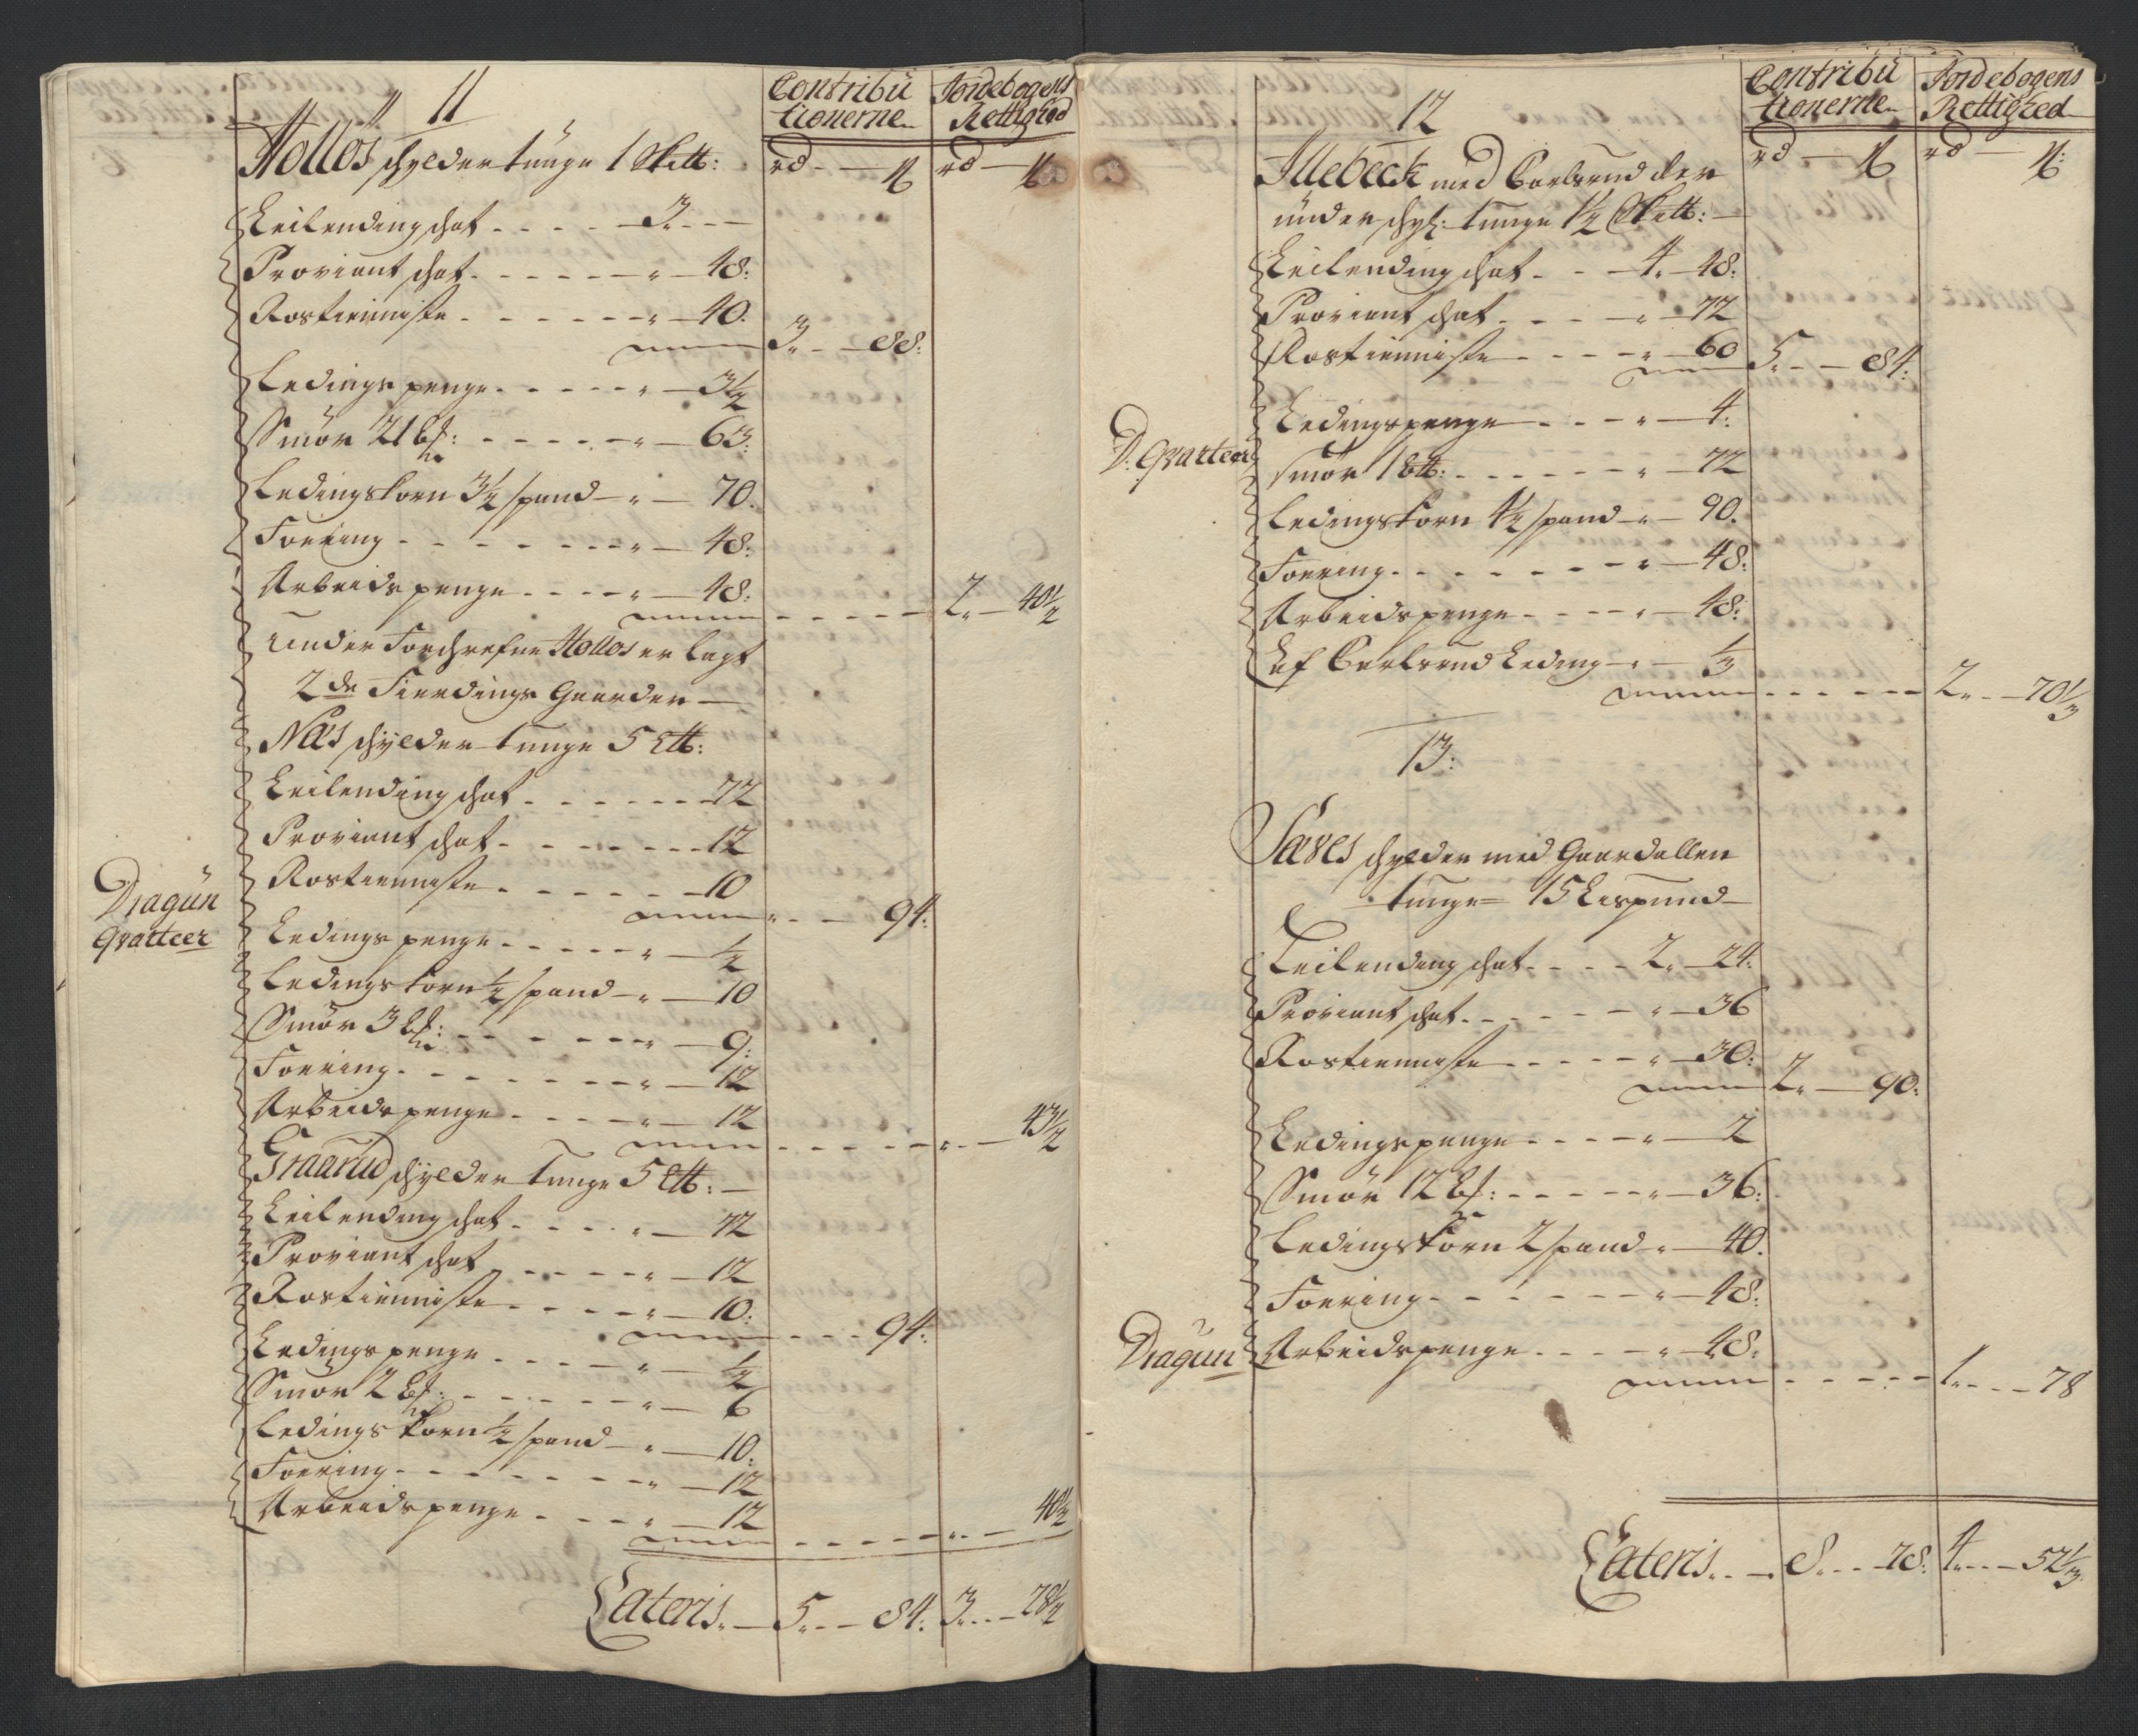 11
Contribu
tionerne
Jordebogens
Rettighed
Hollos schylder tunge 1 Sk℔:
rd - ß rd - ß
Leilending schat - - - - 3 - -
Proviant schat - - - - " - 48:
Rostienniste - - - - " - 40.
3 " - 88:
Ledings penge - - - - " - 3½
Smör 21 - - - - " - 63:
Ledingskorn 3½ spand - " - 70.
Foering - - - - " - 48:
Arbeids penge - - - - " - 48:
2 " - 40½
Under Forschrefne Hollos er lagt
2de Fierdings Gaarder
Næs schylder tunge 5 L℔:
Leilending schat - - - - 72
Proviant schat - - - - 12
Rostienniste - - - - 10
" - 94:
Dragün
Qvarteer
Ledings penge - - - - " - ½
Ledingskorn ½ spand - " - 10
Smör 3 - - - - " - 9:
Foering - - - - " - 12
Arbeids penge - - - - " - 12
" - 43½
Graarud schylder tunge 5 L℔:
Leilending schat - - - - " - 72
Proviant schat - - - - " - 12
Rostienniste - - - - " - 10:
- - 94:
Ledings penge - - - - " - ½
Smör 2 - - - - " - 6
Ledings korn ½ spand - " - 10:
Foering - - - - " - 12
Arbeids penge - - - - " - 12
" - 40½
Lateris. - 5 " - 84: 3 " - 28½
12
Contribu
tionerne
Jordebogens
Rettighed
rd - ß rd - ß:
Illebeck med Carlsrud der
under schyl: tunge 1½ Sk℔:
Leilending schat - - - 4 " - 48:
Proviant schat - - - - " - 72
Rostienniste - - - - " - 60
5 " - 84:
Ledings penge - - - - " - 4:
D: Qvarteer
smör 1 b℔: - - - - " - 72
Ledingskorn 4½ spand - " - 90.
Foering - - - - " - 48:
Arbeids penge - - - - " - 48:
Af Carlsrud Leding - " - ⅓
2 " - 70⅓
13:
Sæves schylder med Gaardallen
tunge 15 Lispund
Leilending schat - - - - 2 " - 24:
Proviant schat - - - - " - 36
Rostienniste - - - - " - 30:
2 " - 90:
Ledings penge - - - - " - 2
Smör 12 - - - - " - 36:
Ledingskorn 2 spand " - 40.
Foering - - - - " - 48:
Dragün
Arbeids penge - - - - " - 48.
1 " - 78
Lateris. - 8 " - 78: 4 " - 52⅓